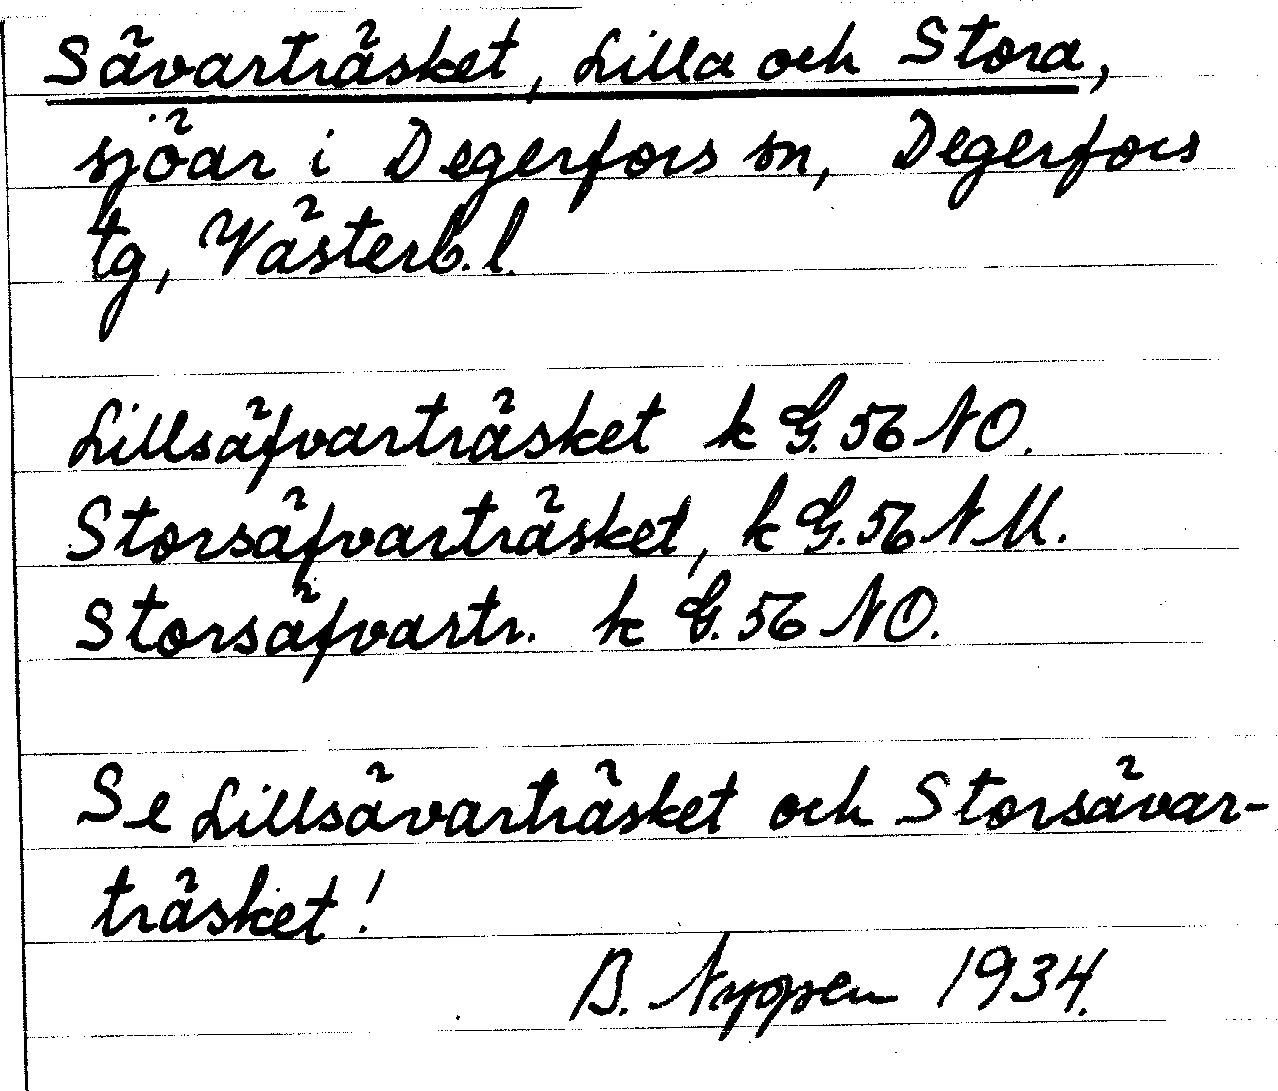 Sävarträsket, Lilla och Stora,
sjöar i Degerfors sn, Degerfors
tg, Västerb. l.
Lillsäfvarträsket k G. 56 NO.
Storsäfvarträsket, k G. 56 NM.
Storsäfvartr. k G. 56 NO.
Se Lillsävarträsket och Storsävar-
träsket!
B. 1934.